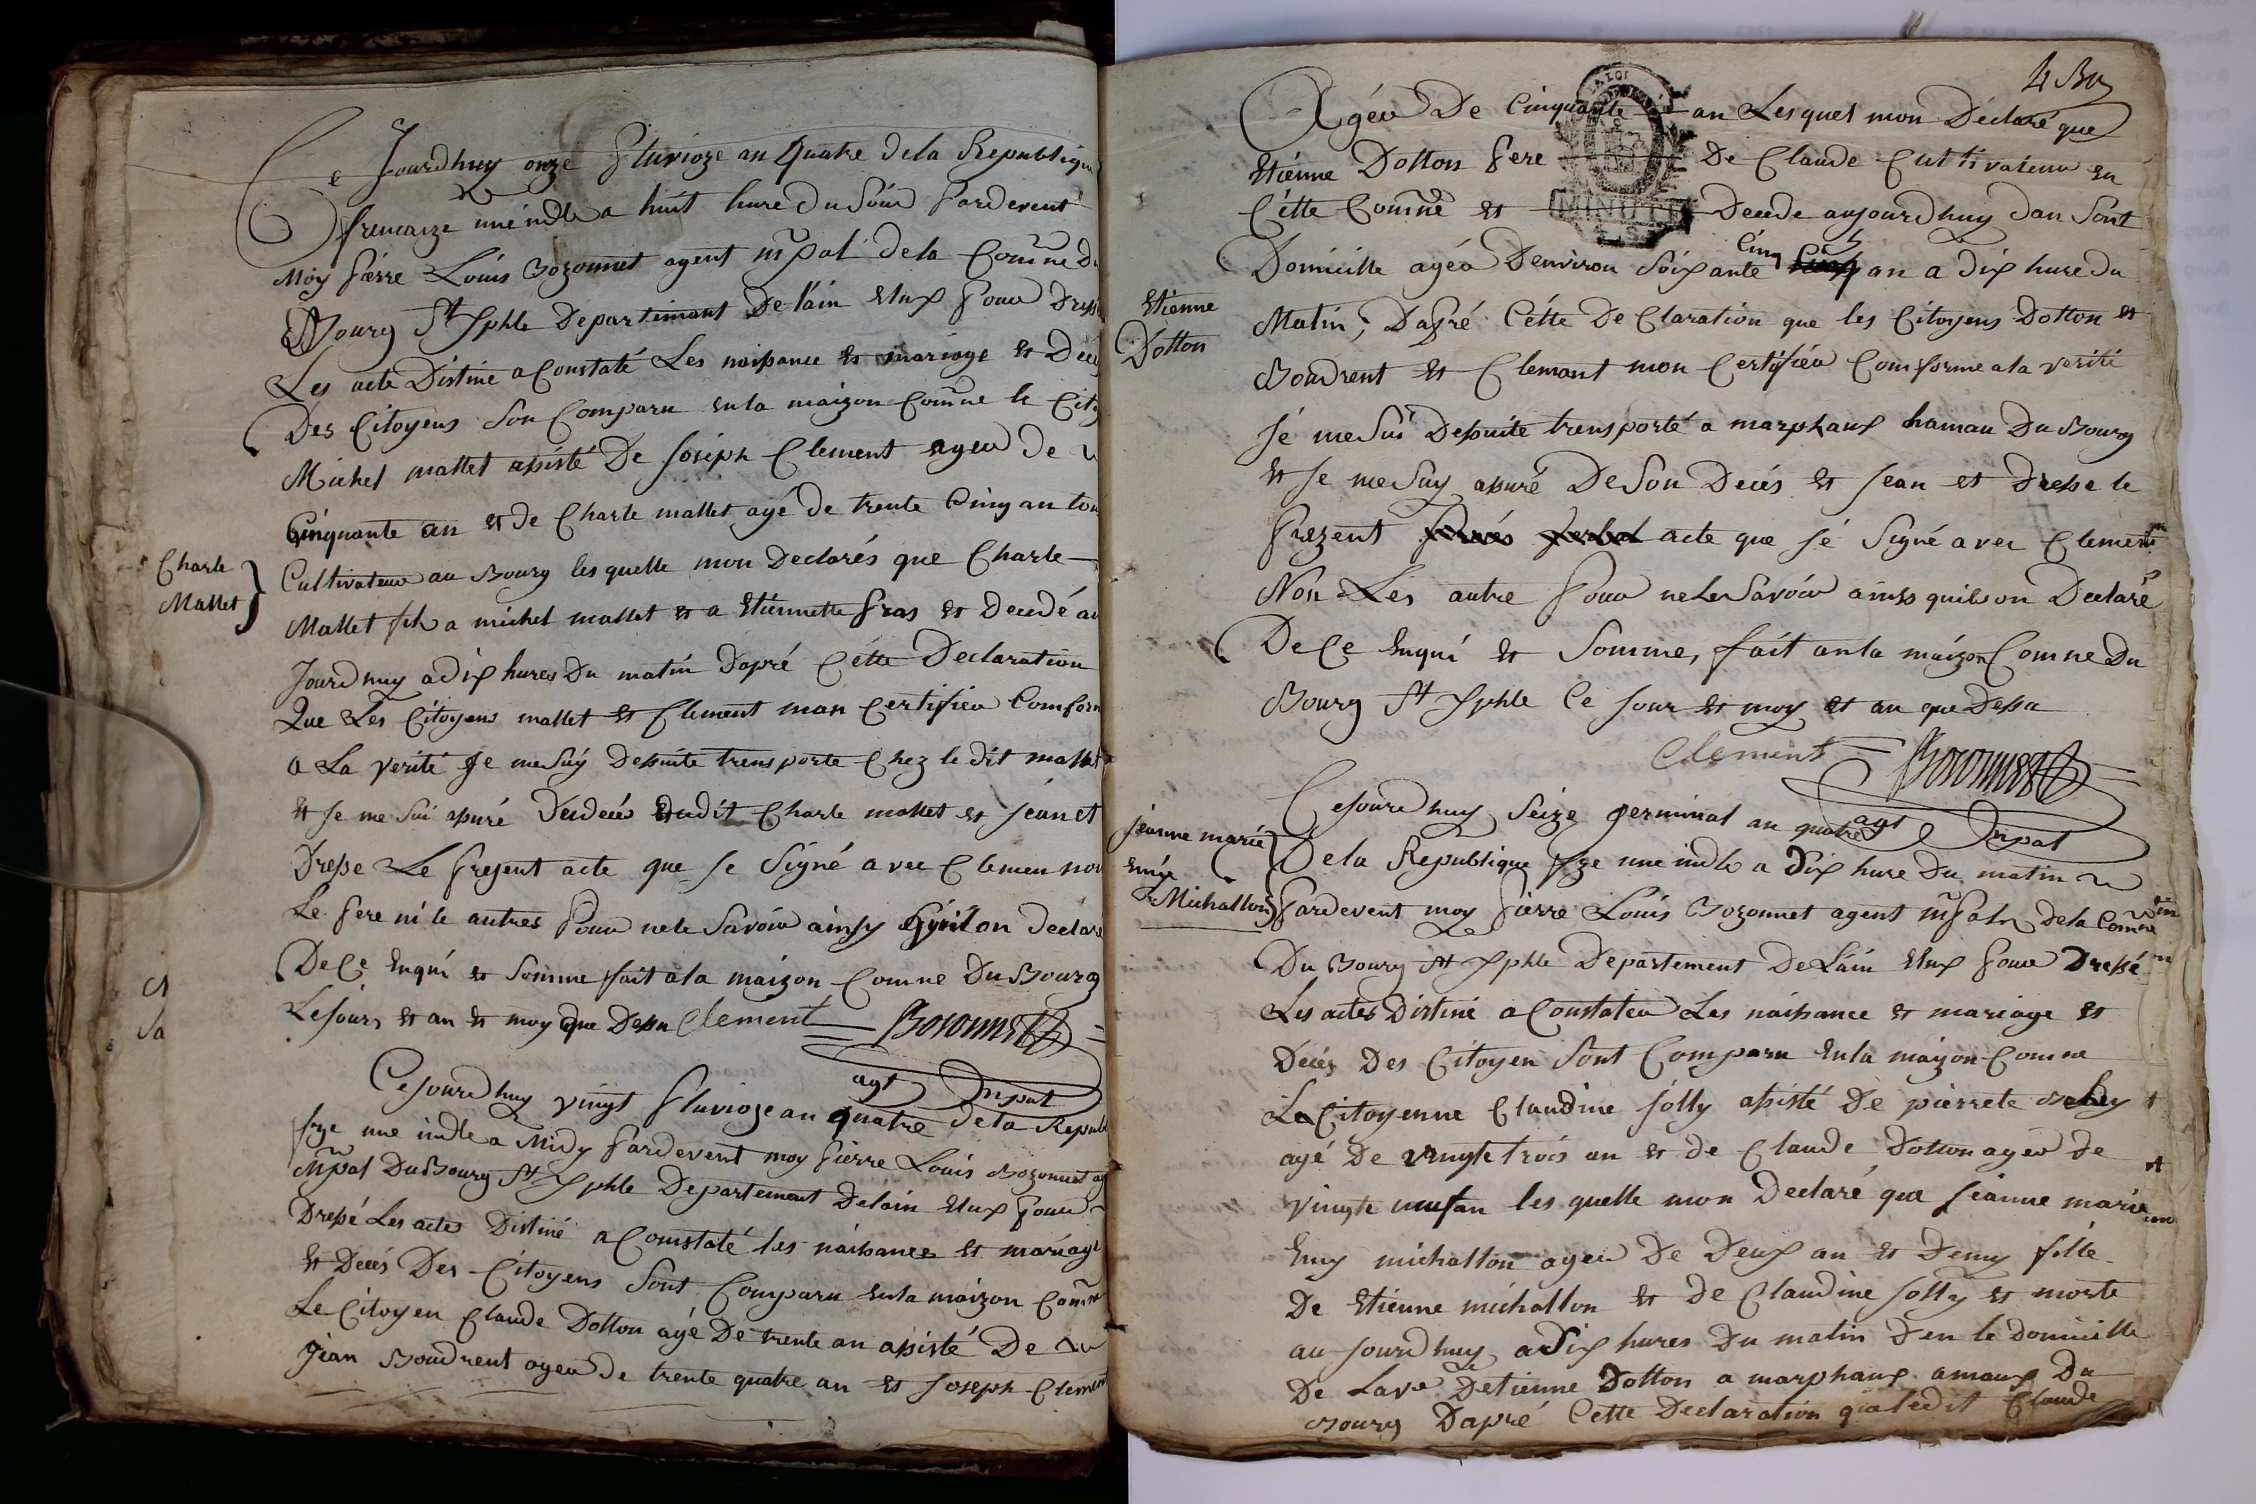 Ce Jourdhuy onze Pluvioze an Quatre dela Republique
francaize une indle a huit hure du Soir Pardevent
Moy Pierre Louis Bozonnet agent mpal dela Comne du
Bourg St Xphle Departemant De l'ain Elux Pour Dresse
Les acte Distiné a Constaté Les naissance et mariage et Dece
Des Citoyens Son Comparu enla maizon Comne le Cito
Michel mallet assisté De Joseph Clement agea de
Cinquante an et de Charle mallet agé de trente Cinq an tou
Charle
Mallet
Cultivateur au Bourg lesquelle mon Declarés que Charle
Mallet fils a michel mallet et a Etiennette Pras et Decedé au
Jourdhuy a dix hures Du matin Dapré Cétte Declaration
Que Les Citoyens mallet et Clement mon Certifiea Comform
a La verité Je me Suy Dessuite trensporte Chez ledit mallet
et Je me Sui assuré Dudeces dudit Charle mallet et Jéan et
Dresse Le Present acte que Je Signé avec Clemen non
Le Pere ni le autres Pour nele Savoir ainsy quil on declaré
De Ce Enqui et Somme fait ala maizon Comne Du Bourg
Le Jour, et an et moy que Dessu Clement Bozonnet
agt mpal
Ce Jourdhuy vingt Pluvioze an quatre dela Republ
fze une indle a Midy Pardevent moy Pierre Louis Bozonnet ag
Mpal Du Bourg St Xphle Departement Delain Elux Pour
Dressé Les acte Distiné a Comstaté les naissances et mariage
et Decés Des Citoyens Sont Comparu enla maizon Comne
Le Citoyen Claude Dotton agé De trente an assisté De
Jean Boudrent agea de trente quatre an et Joseph Clement
4
Agéa De Cinquante an Lesquel mon Déclaré que
Etienne Dotton Pere De Claude Cultivateur en
Cétte Comne et Decede aujourdhuy dan Sont
Domicille agéa Denviron Soixante Cinq an a dix hure du
Etienne
Dotton
Matin, Dapré Cétte DeClaration que les Citoyens Dotton et
Boudrent et Clemant mon Certifiéa Comforme ala verité
Jé me Sui Dessuite trensporté a marphaux hamau Du Bourg
et Je me Suy assuré De Son Decés et Jean et dresse le
Prezent acte que Jé Signé avec Clement
Non Les autre Pour nele Savoir ainsy quils on Declaré
De Ce Enqui et Somme, fait anla maizon Comne Du
Bourg St Xphle Ce Jour et moy et an que Dessu
Clement Bozonnet
agt mpal
Ce Jourdhuy Seize germinal an quatre
jeanne marie
Emée
Michallon
De la Republique fze une indle a Dix hure Du matin
Pardevent moy Pierre Louis Bozonnet agent mpal dela Comne
Du Bourg St Xphle Departement De Lain Elux Pour Dressé
Les actes Distiné a Constatea Les naissance et mariage et
Deces Des Citoyen Sont Comparu Enla maizon Comne
La Citoyenne Claudine Jolly assisté De pierrete
agé De vingte trois an et de Claude Dotton agéa de
vingte neufan lesquelle mon Declaré que Jeanne marie
Emy michallon agea De Deux an et Demy fille
De Etienne michallon et de Claudine Jolly et morte
au Jourdhuy a Dix hures Du matin Den le Domicille
De Lave Detienne Dotton a marphaux amaux Du
Bourg Dapré Cette Declaration qua ledit Claude